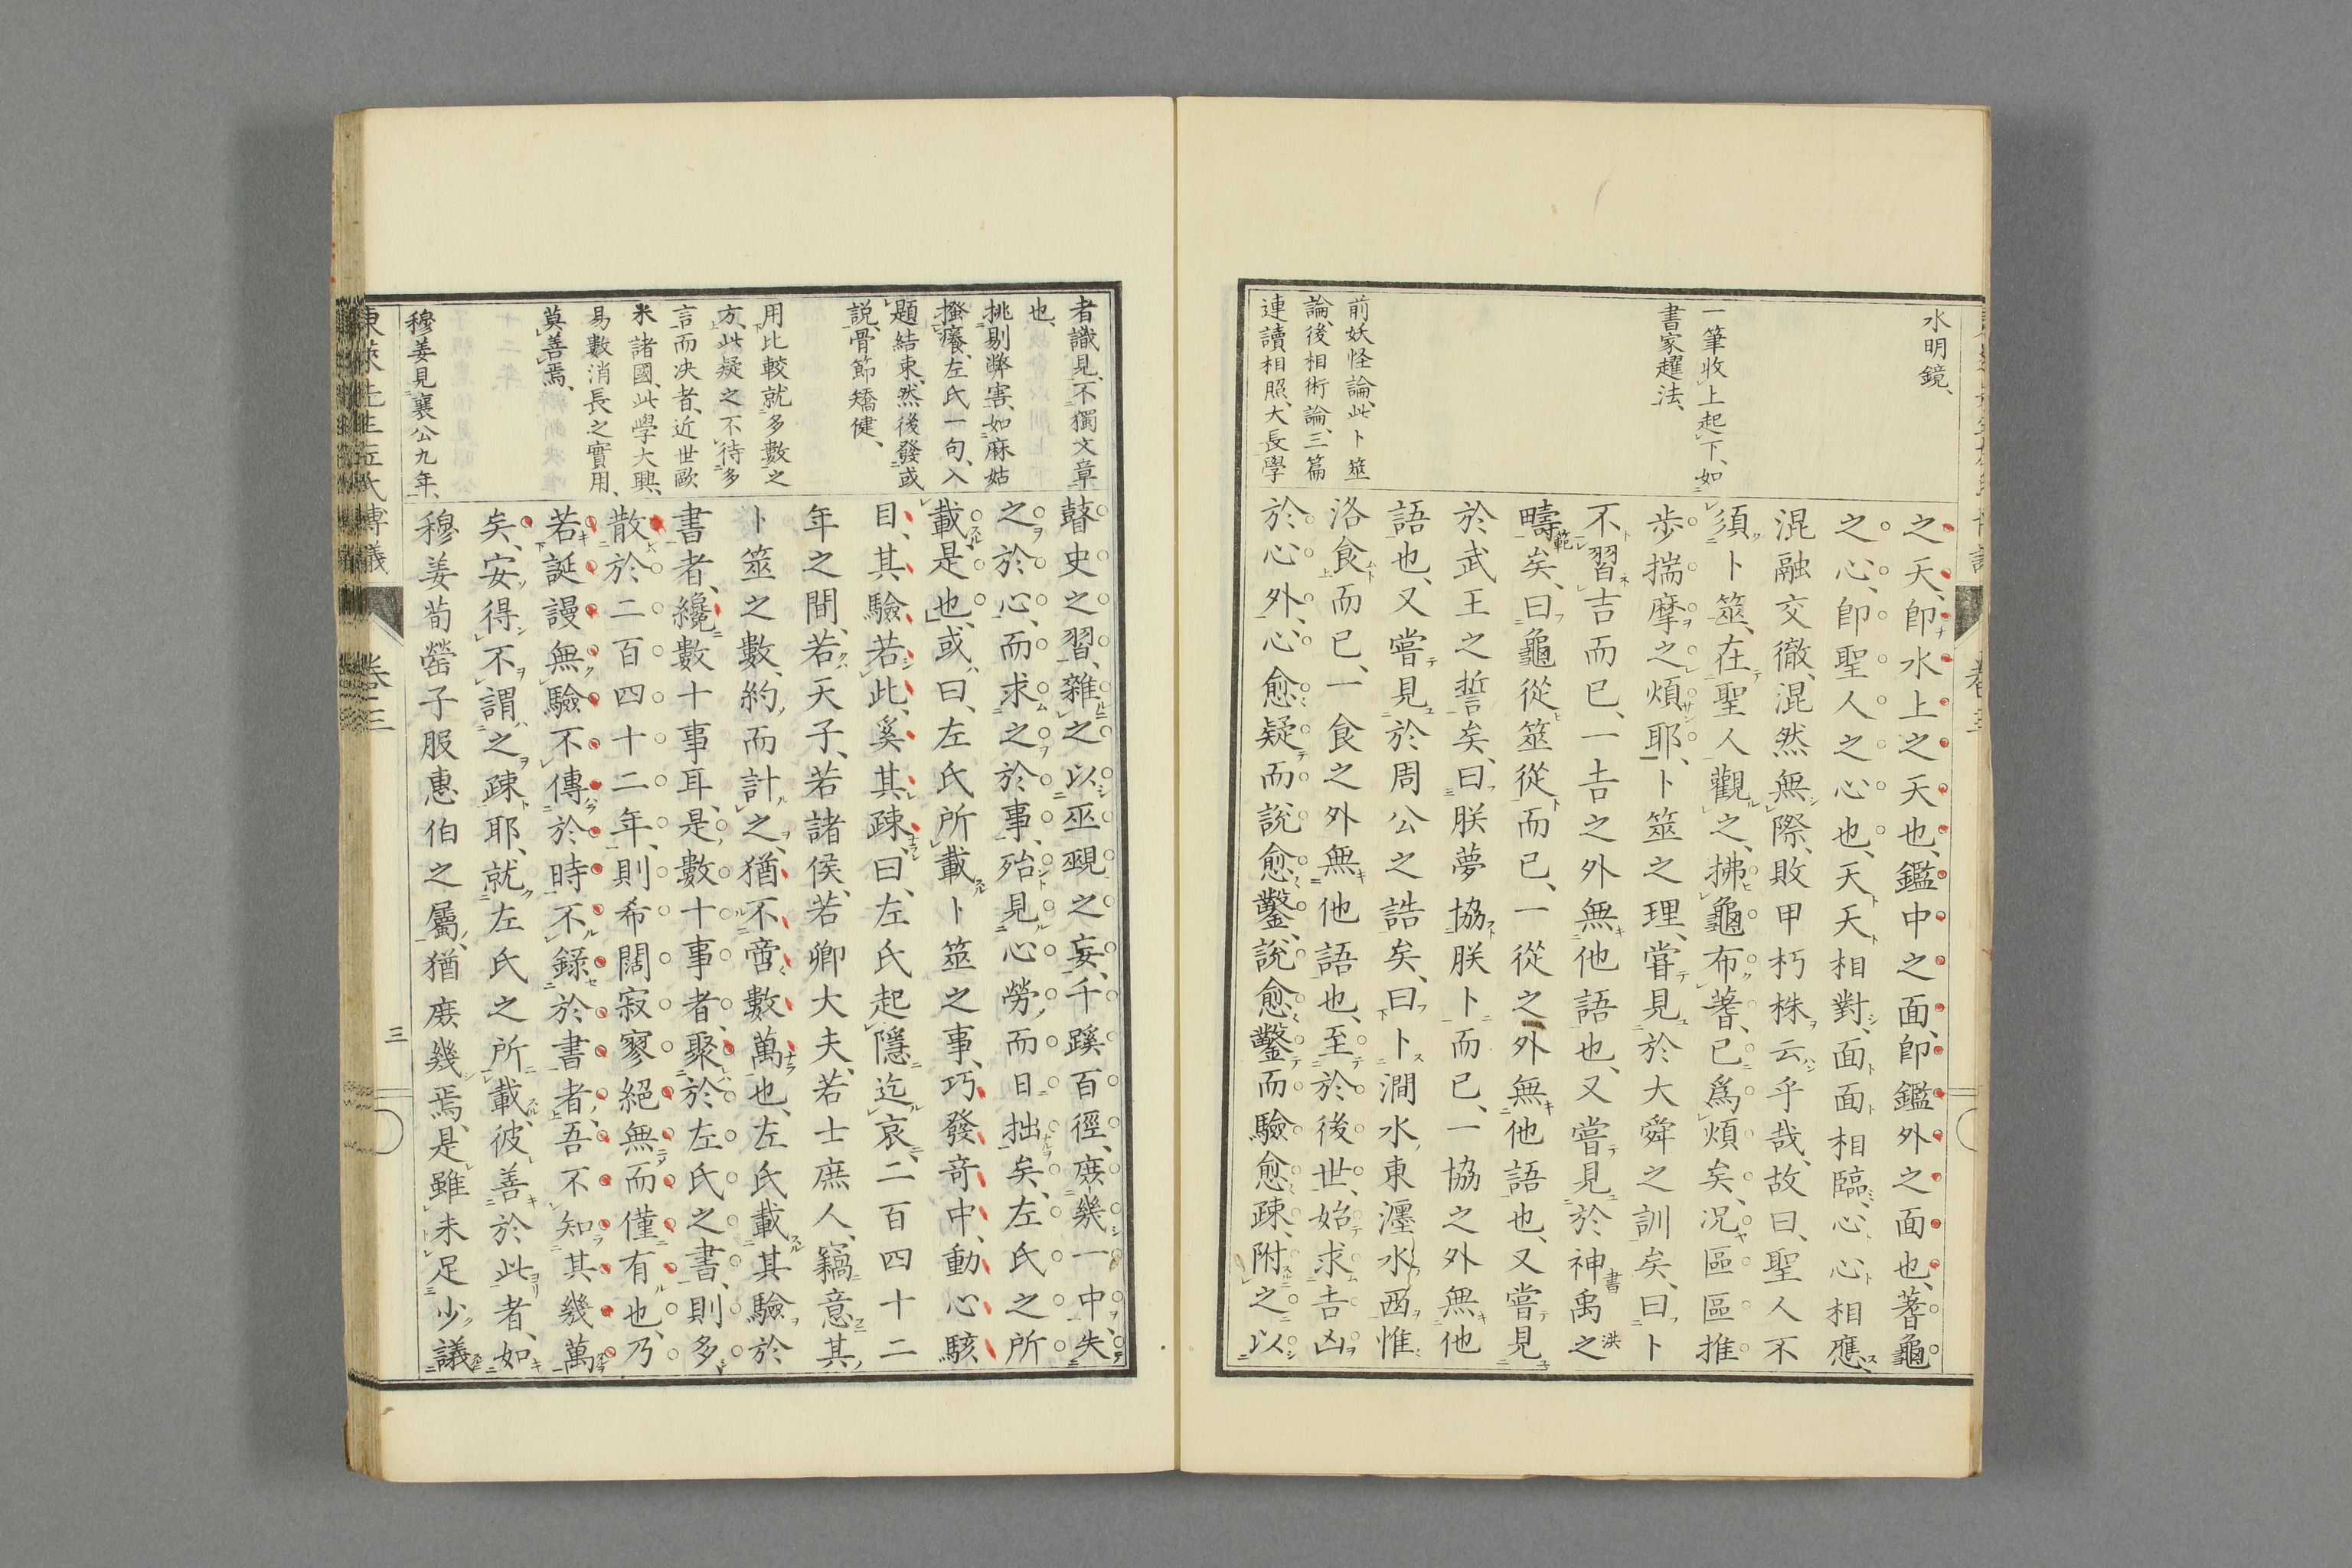 水明鏡、
一筆收上起下、如
書家趯法、
前妖怪論、此卜筮
論、後相術論、三篇
連讀相照、大長學
之天、卽水上之天也、鑑中之面、卽鑑外之面也、蓍龜
之心、卽聖人之心也、天天相對、面面相臨、心心相應、
混融交徹、混然無際、敗甲朽株云乎哉、故曰、聖人不
須卜筮、在聖人觀之、拂龜布蓍、已爲煩矣、况區區推
步揣摩之煩耶、卜筮之理、嘗見於大舜之訓矣、曰卜
不習吉而已、一吉之外無他語也、又嘗見於神禹之
疇矣、曰龜從筮從而已、一從之外無他語也、又嘗見
於武王之誓矣、曰朕夢協朕卜而已、一協之外無他
語也、又嘗見於周公之誥矣、曰卜澗水東瀍水西惟
洛食而已、一食之外無他語也、至於後世、始求吉凶
於心外、心愈疑而說愈鑿、說愈鑿而驗愈疎、附之以
卷三
者識見、不獨文章
也、
挑剔弊害、如麻姑
搔癢、左氏一句、入
題結束、然後發或
説、骨節矯健、
用比較就多數之
方、此疑之不待多
言而决者、近世歐
米諸國、此學大興、
易數消長之實用、
莫善焉、
穆姜見襄公九年、
瞽史之習、雜之以巫覡之妄、千蹊百徑、庶幾一中、失
之於心、而求之於事、殆見心勞、而日拙矣、左氏之所
載是也、或曰、左氏所載卜筮之事、巧發奇中、動心駭
目、其驗若此、奚其疎、曰、左氏起隱迄哀、二百四十二
年之間、若天子、若諸侯、若卿大夫、若士庶人、竊意其
卜筮之數、約而計之、猶不啻數萬也、左氏載其驗於
書者、纔數十事耳、是數十事者、聚於左氏之書、則多、
散於二百四十二年、則希闊寂寥絕無而僅有也、乃
若誕謾無驗、不傳於時、不錄於書者、吾不知其幾萬
矣、安得不謂之疎耶、就左氏之所載、彼善於此者、如
穆姜荀罃子服惠伯之屬、猶庶幾焉、是雖未足少議
東萊先生左氏博議
卷三
三